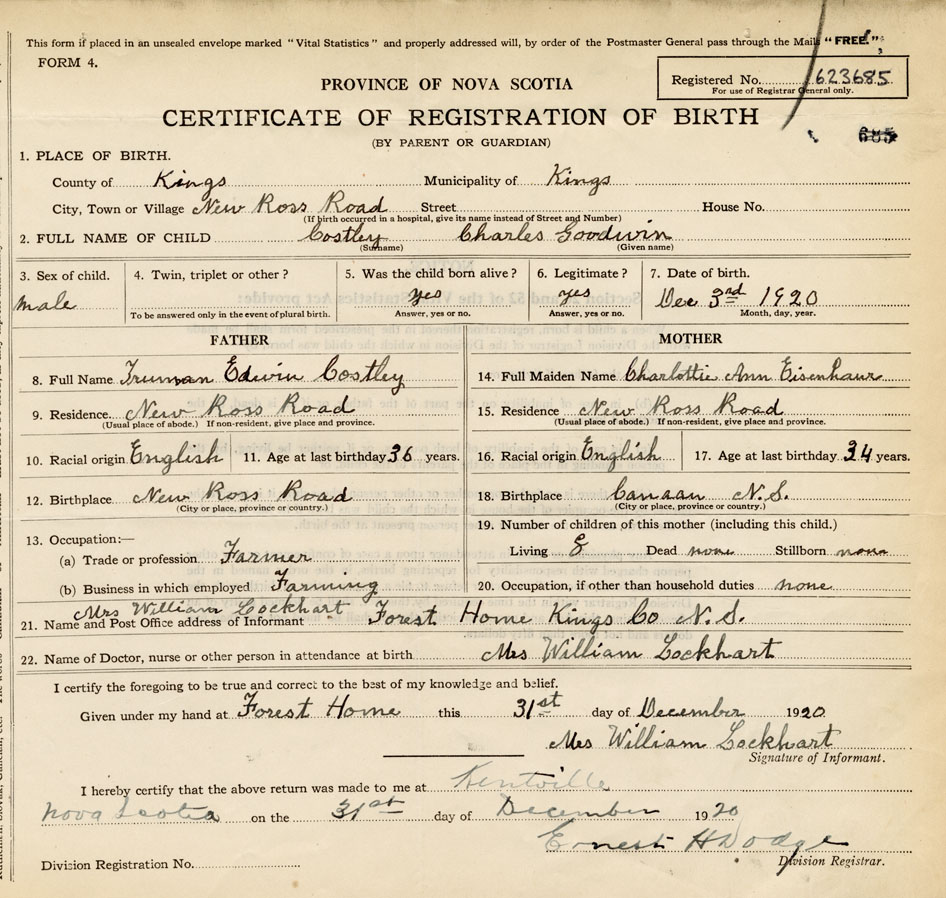 This form if placed in an unsealed envelope marked "Vital Statistics" and properly addressed will, by order of the Postmaster General pass through the Mails "FREE."
FORM 4.
Registered No. 1623685
For use of Registrar General only.
PROVINCE OF NOVA SCOTIA
CERTIFICATE OF REGISTRATION OF BIRTH
685
(BY PARENT OR GUARDIAN)
1. PLACE OF BIRTH.
County of Kings Municipality of Kings
City, Town or Village New Ross Road Street House No.
(If birth occurred in a hospital, give its name instead of Street and Number)
2. FULL NAME OF CHILD Costley Charles Goodwin
(Surname) (Given name)
3. Sex of child. 4. Twin, triplet or other? 5. Was the child born alive? 6. Legitimate? 7. Date of birth.
Male yes yes Dec 3rd 1920
To be answered only in the event of plural birth. Answer, yes or no. Answer, yes or no. Month, day, year.
FATHER MOTHER
8. Full Name Truman Edwin Costley 14. Full Maiden Name Charlottie Ann Eisenhaur
9. Residence. New Ross Road 15. Residence New Ross Road
(Usual place of abode.) If non-resident, give place and province. (Usual place of abode.) If non-resident, give place and province.
10. Racial origin English 11. Age at last birthday 36 years. 16. Racial origin English 17. Age at last birthday 34 years.
12. Birthplace New Ross Road 18. Birthplace Canaan N.S.
(City or place, province or country.) (City or place, province or country.)
13. Occupation:— 19. Number of children of this mother (including this child.)
(a) Trade or profession Farmer Living 8 Dead none Stillborn none
(b) Business in which employed Farming 20. Occupation, if other than household duties none
21. Name and Post Office address of Informant Mrs William Lockhart Forest Home Kings Co N.S.
22. Name of Doctor, nurse or other person in attendance at birth Mrs William Lockhart
I certify the foregoing to be true and correct to the best of my knowledge and belief.
Given under my hand at Forest Home this 31st day of December 1920
Mrs William Lockhart
Signature of Informant.
I hereby certify that the above return was made to me at Kentville
Nova Scotia on the 31st day of December 1920
Ernest H Dodge
Division Registration No. Division Registrar.